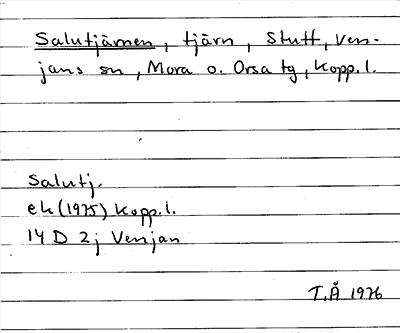 Salutjärnen, tjärn, Stutt, Ven-
jans sn, Mora o. Orsa tg, Kopp. l.
Salutj.
ek (1975) Kopp. l.
14 D 2j Venjan
T.Å 1976